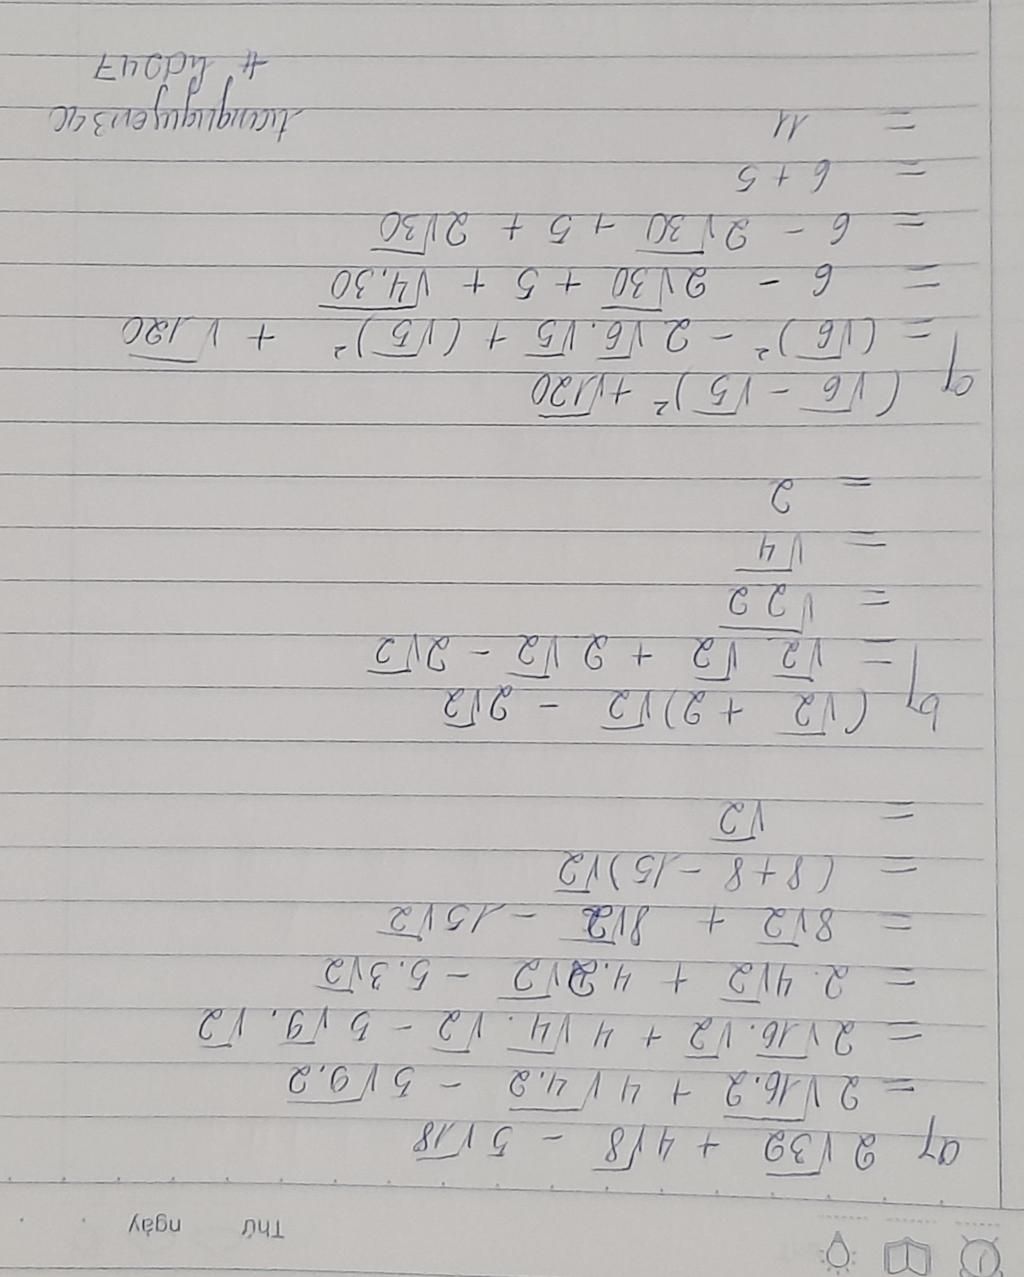 Thứ ngày
a, 2√32 + 4√8 - 5√18
= 2√16.2 + 4√4.2 - 5√9.2
= 2√16.√2 + 4√4.√2 - 5√9.√2
= 2.4√2 + 4.2√2 - 5.3√2
= 8√2 + 8√2 - 15√2
= (8+8-15)√2
= √2
b, (√2 + 2)√2 - 2√2
= √2.√2 + 2√2 - 2√2
= √2.2
= √4
= 2
(√6 - √5)² + √120
= (√6)² - 2√6.√5 + (√5)² + √120
= 6 - 2√30 + 5 + √4.30
= 6 - 2√30 + 5 + 2√30
= 6 + 5
= 11
# hd247